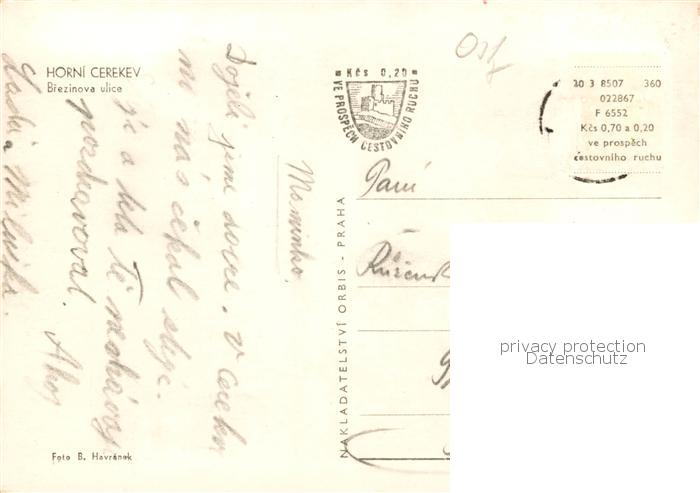 HORNÍ CEREKEV
Březinova ulice
Maminko,
Dojeli jsme dobře. V Cerekvi
nás čekal strýc.
a teta Tě
pozdravoval. Ahoj
Láďa a Miluška.
Foto B. Havránek
NAKLADATELSTVÍ ORBIS - PRAHA
Kčs 0,20
VE PROSPĚCH CESTOVNÍHO RUCHU
30 3 8507 360
022867
F 6552
Kčs 0,70 a 0,20
ve prospěch
cestovního ruchu
Paní
privacy protection
Datenschutz